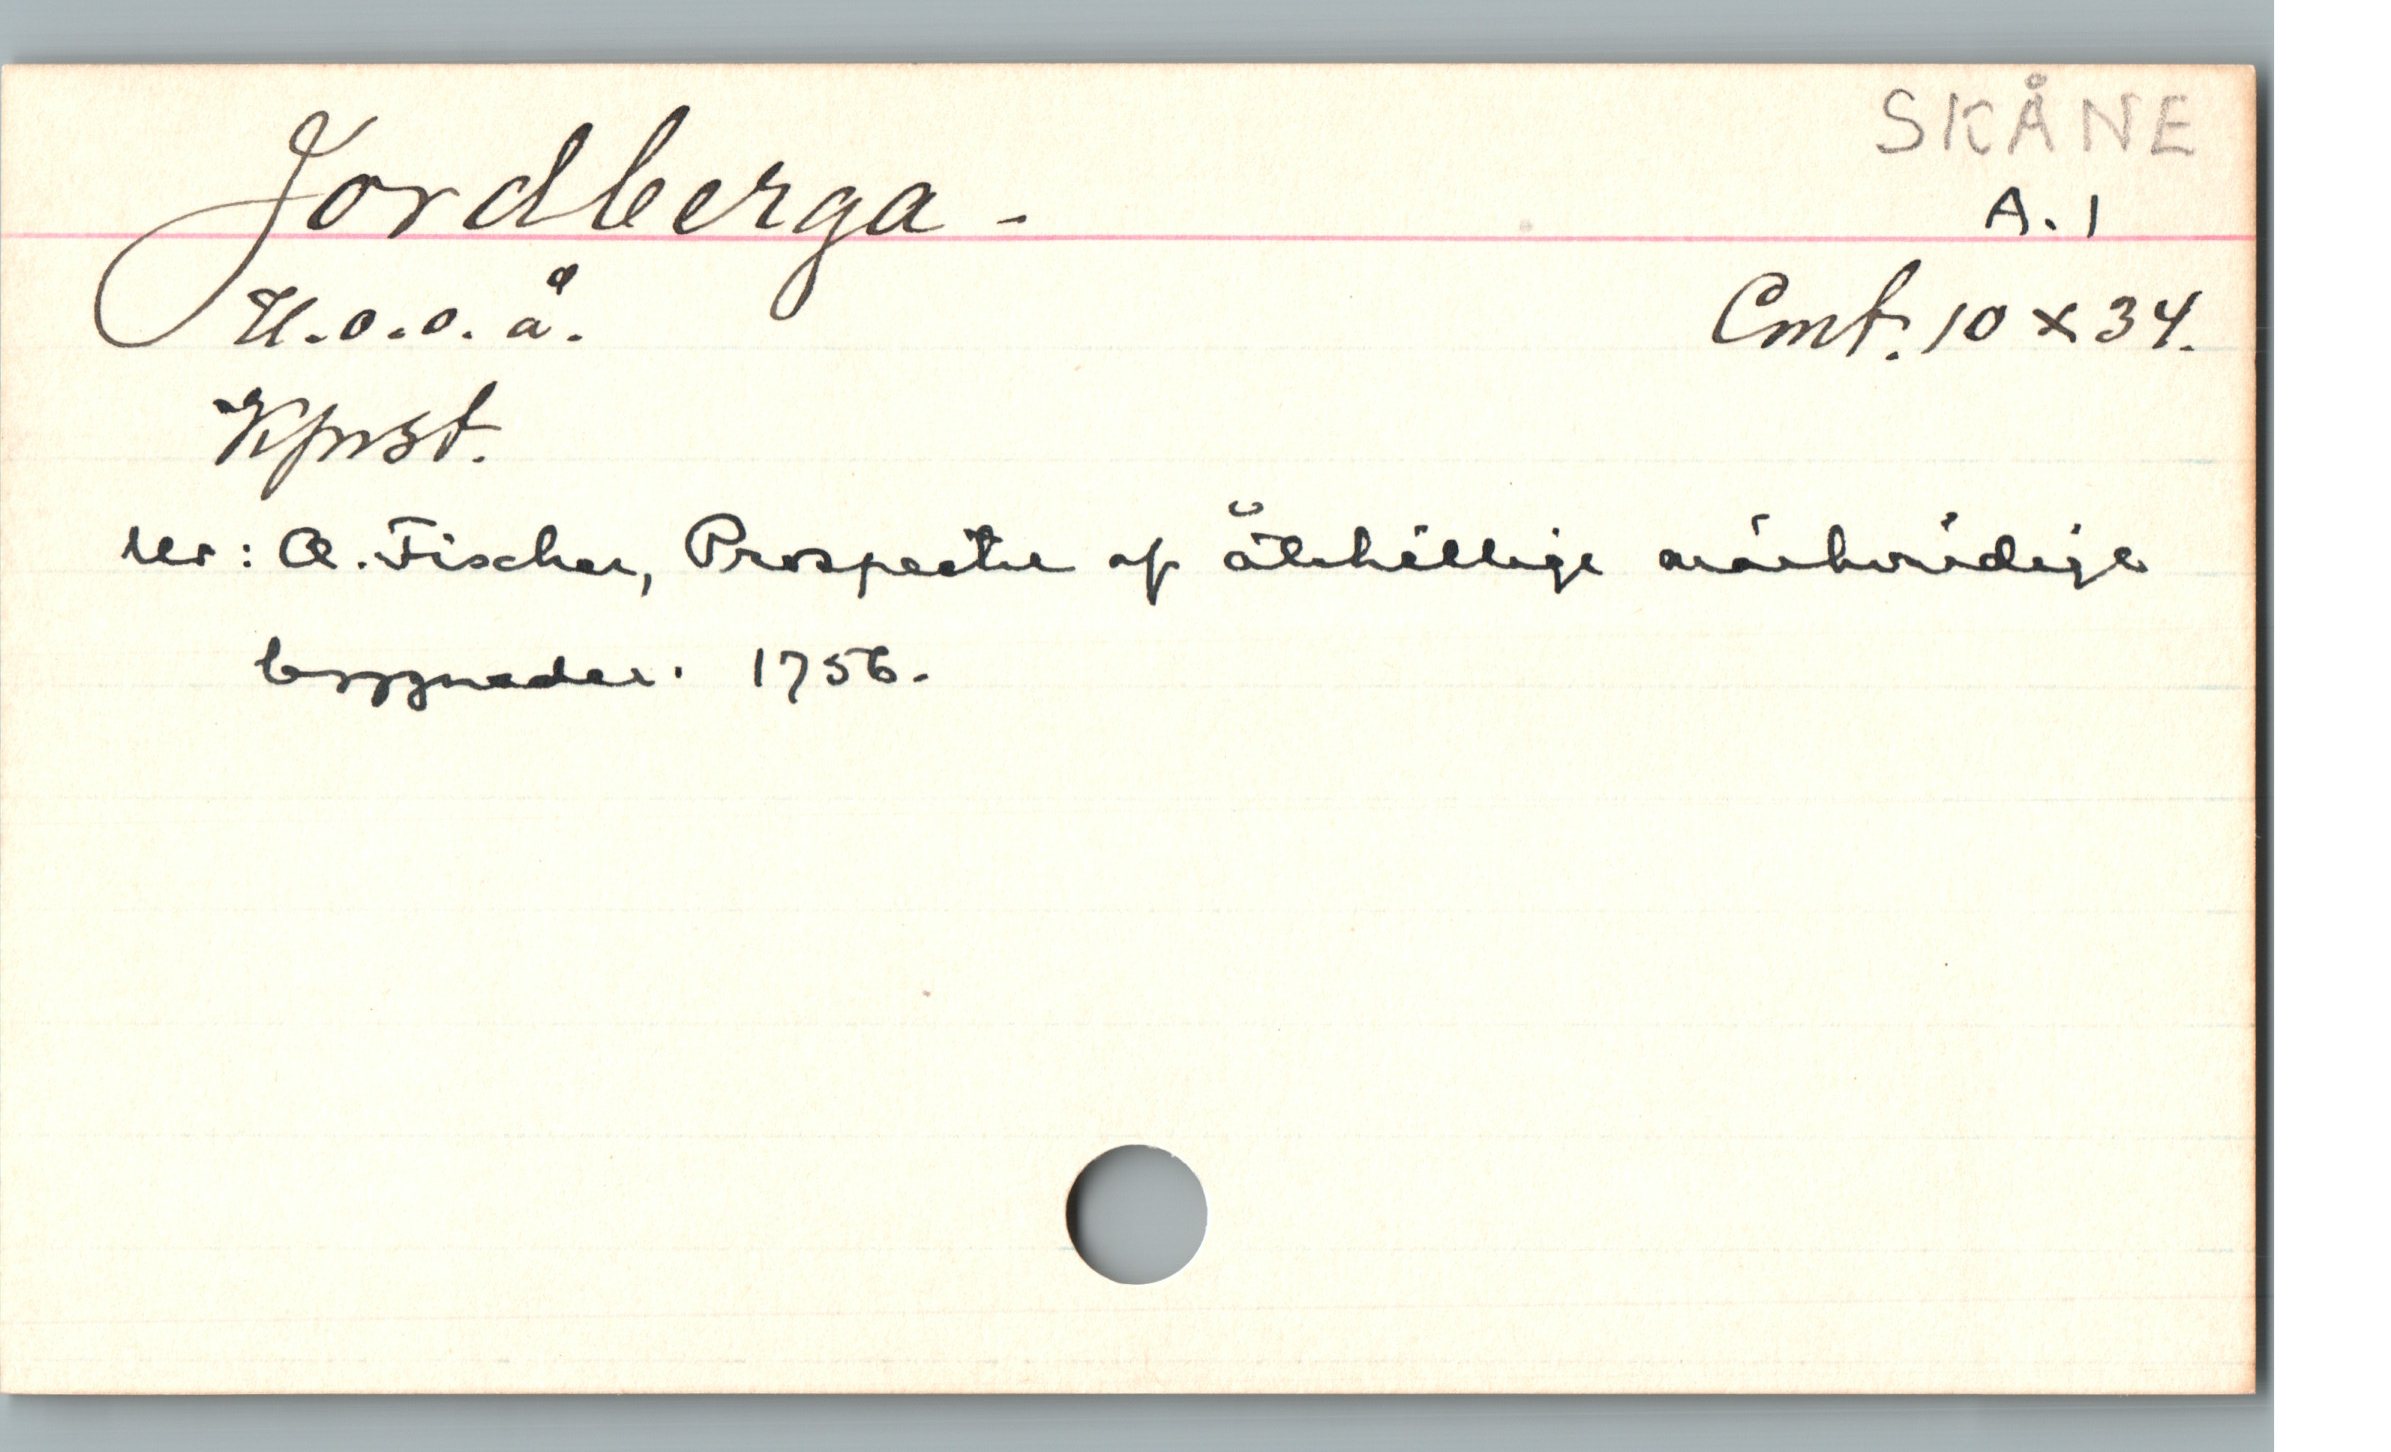 SKÅNE
Jordberga -
A. 1
U.o.o.å.
Cmt. 10 x 34.
Kpnst.
Ur: A. Fischer, Prospecter af åtskillige märkvärdige
byggnader. 1756.